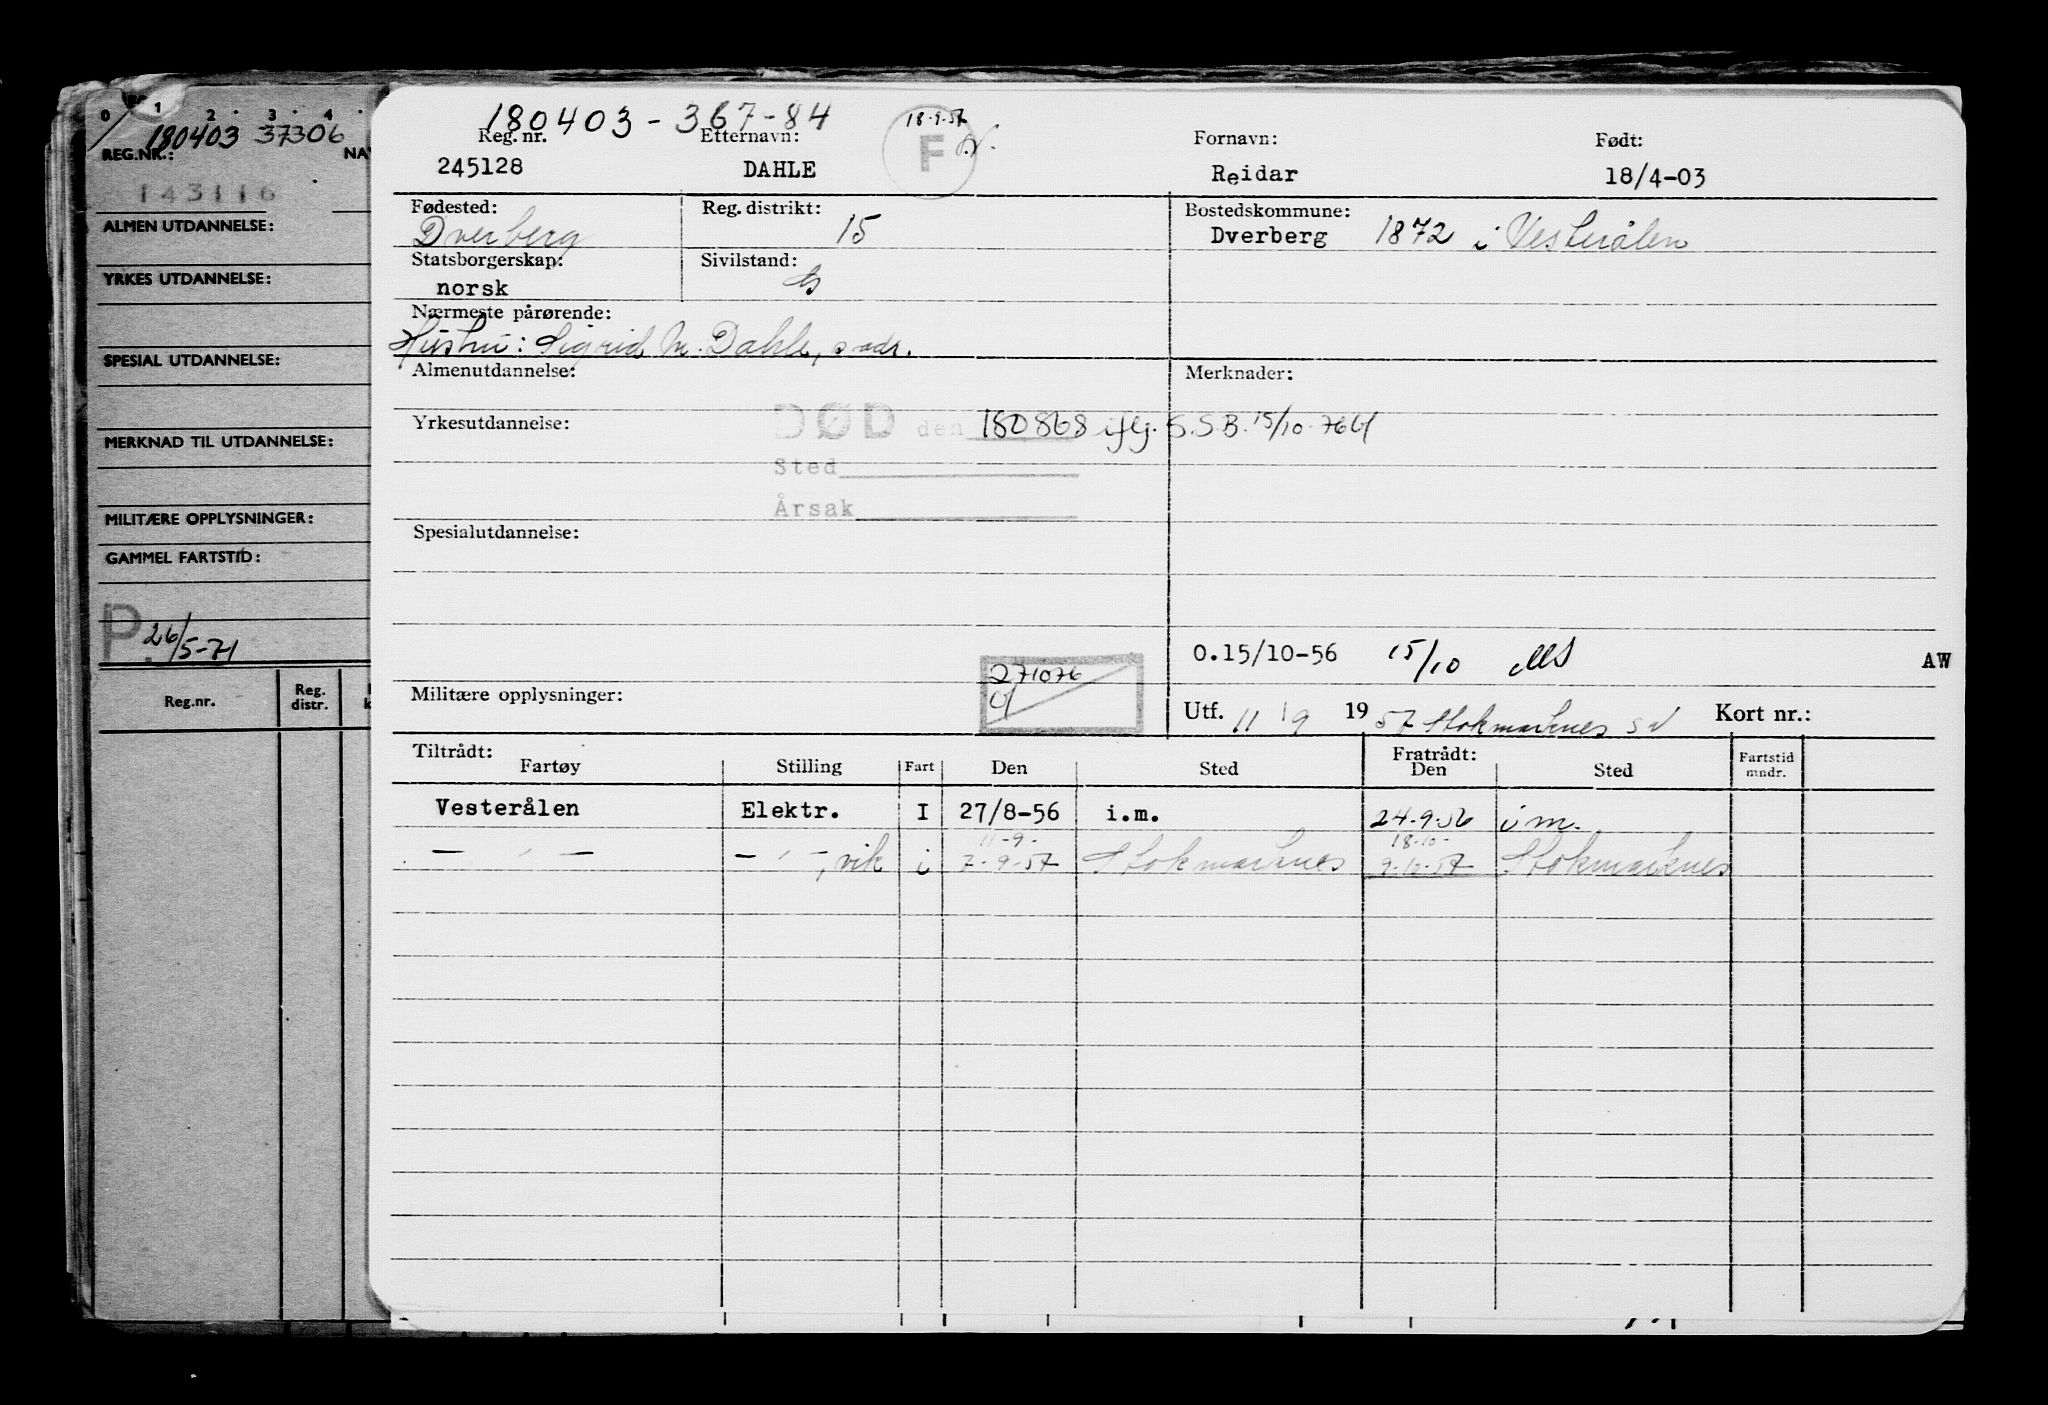 0 1 2 · 3 · 4 ·
180403 37306
REG.NR.: NA
143116
ALMEN UTDANNELSE:
YRKES UTDANNELSE:
SPESIAL UTDANNELSE:
MERKNAD TIL UTDANNELSE:
MILITÆRE OPPLYSNINGER:
GAMMEL FARTSTID:
P. 26/5-71
Reg.nr. Reg. distr.
180403-367-84 18-9-57
Reg.nr. Etternavn: F Fornavn: Født:
245128 DAHLE Reidar 18/4-03
Fødested: Reg. distrikt: Bostedskommune:
Dverberg 15 Dverberg 1872 i Vesterålen
Statsborgerskap: Sivilstand:
norsk G
Nærmeste pårørende:
Hustru: Sigrid M. Dahle, s adr.
Almenutdannelse: Merknader:
Yrkesutdannelse: DØD den 180868 iflg. S.S.B. 15/10-76
Sted
Årsak
Spesialutdannelse:
0.15/10-56 15/10 AW
271076
Militære opplysninger: Utf. 11/9 1957 Stokmarknes Kort nr.:
Tiltrådt: Fratrådt:
Fartøy Stilling Fart Den Sted Den Sted Fartstid mndr.
Vesterålen Elektr. I 27/8-56 i.m. 24-9-56 i m.
11-9- 18-10-
— ' — — ' —, vik i 7-9-57 Stokmarknes 9-10-57 Stokmarknes